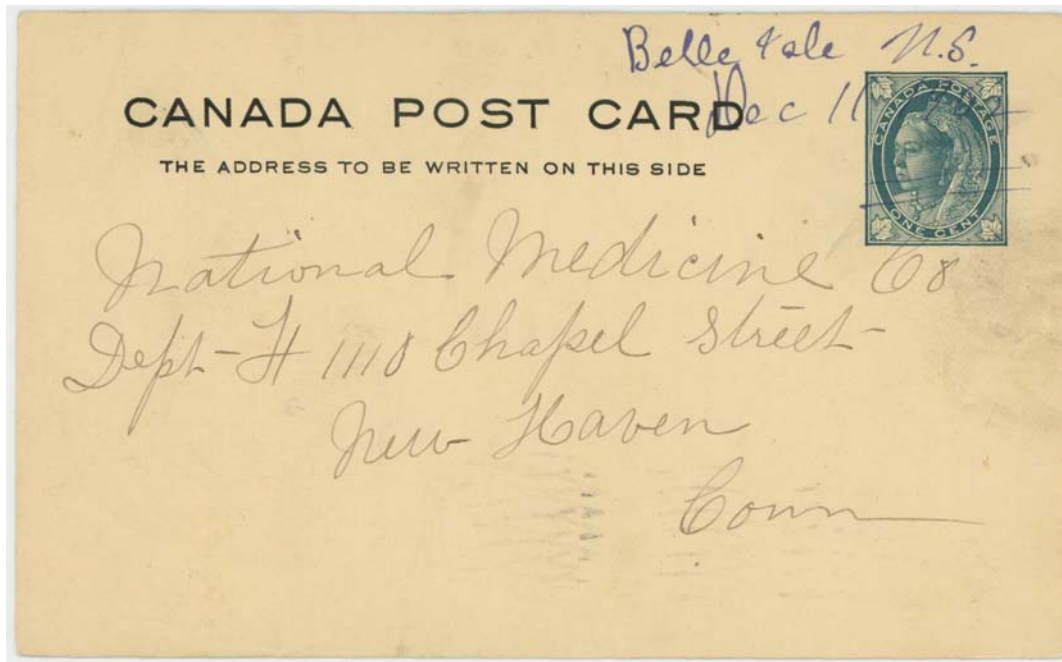 Belle Isle N.S.
Dec 11
CANADA POST CARD
THE ADDRESS TO BE WRITTEN ON THIS SIDE
CANADA POSTAGE
ONE CENT
National Medicine Co
Dept-H 1118 Chapel Street
New Haven
Conn